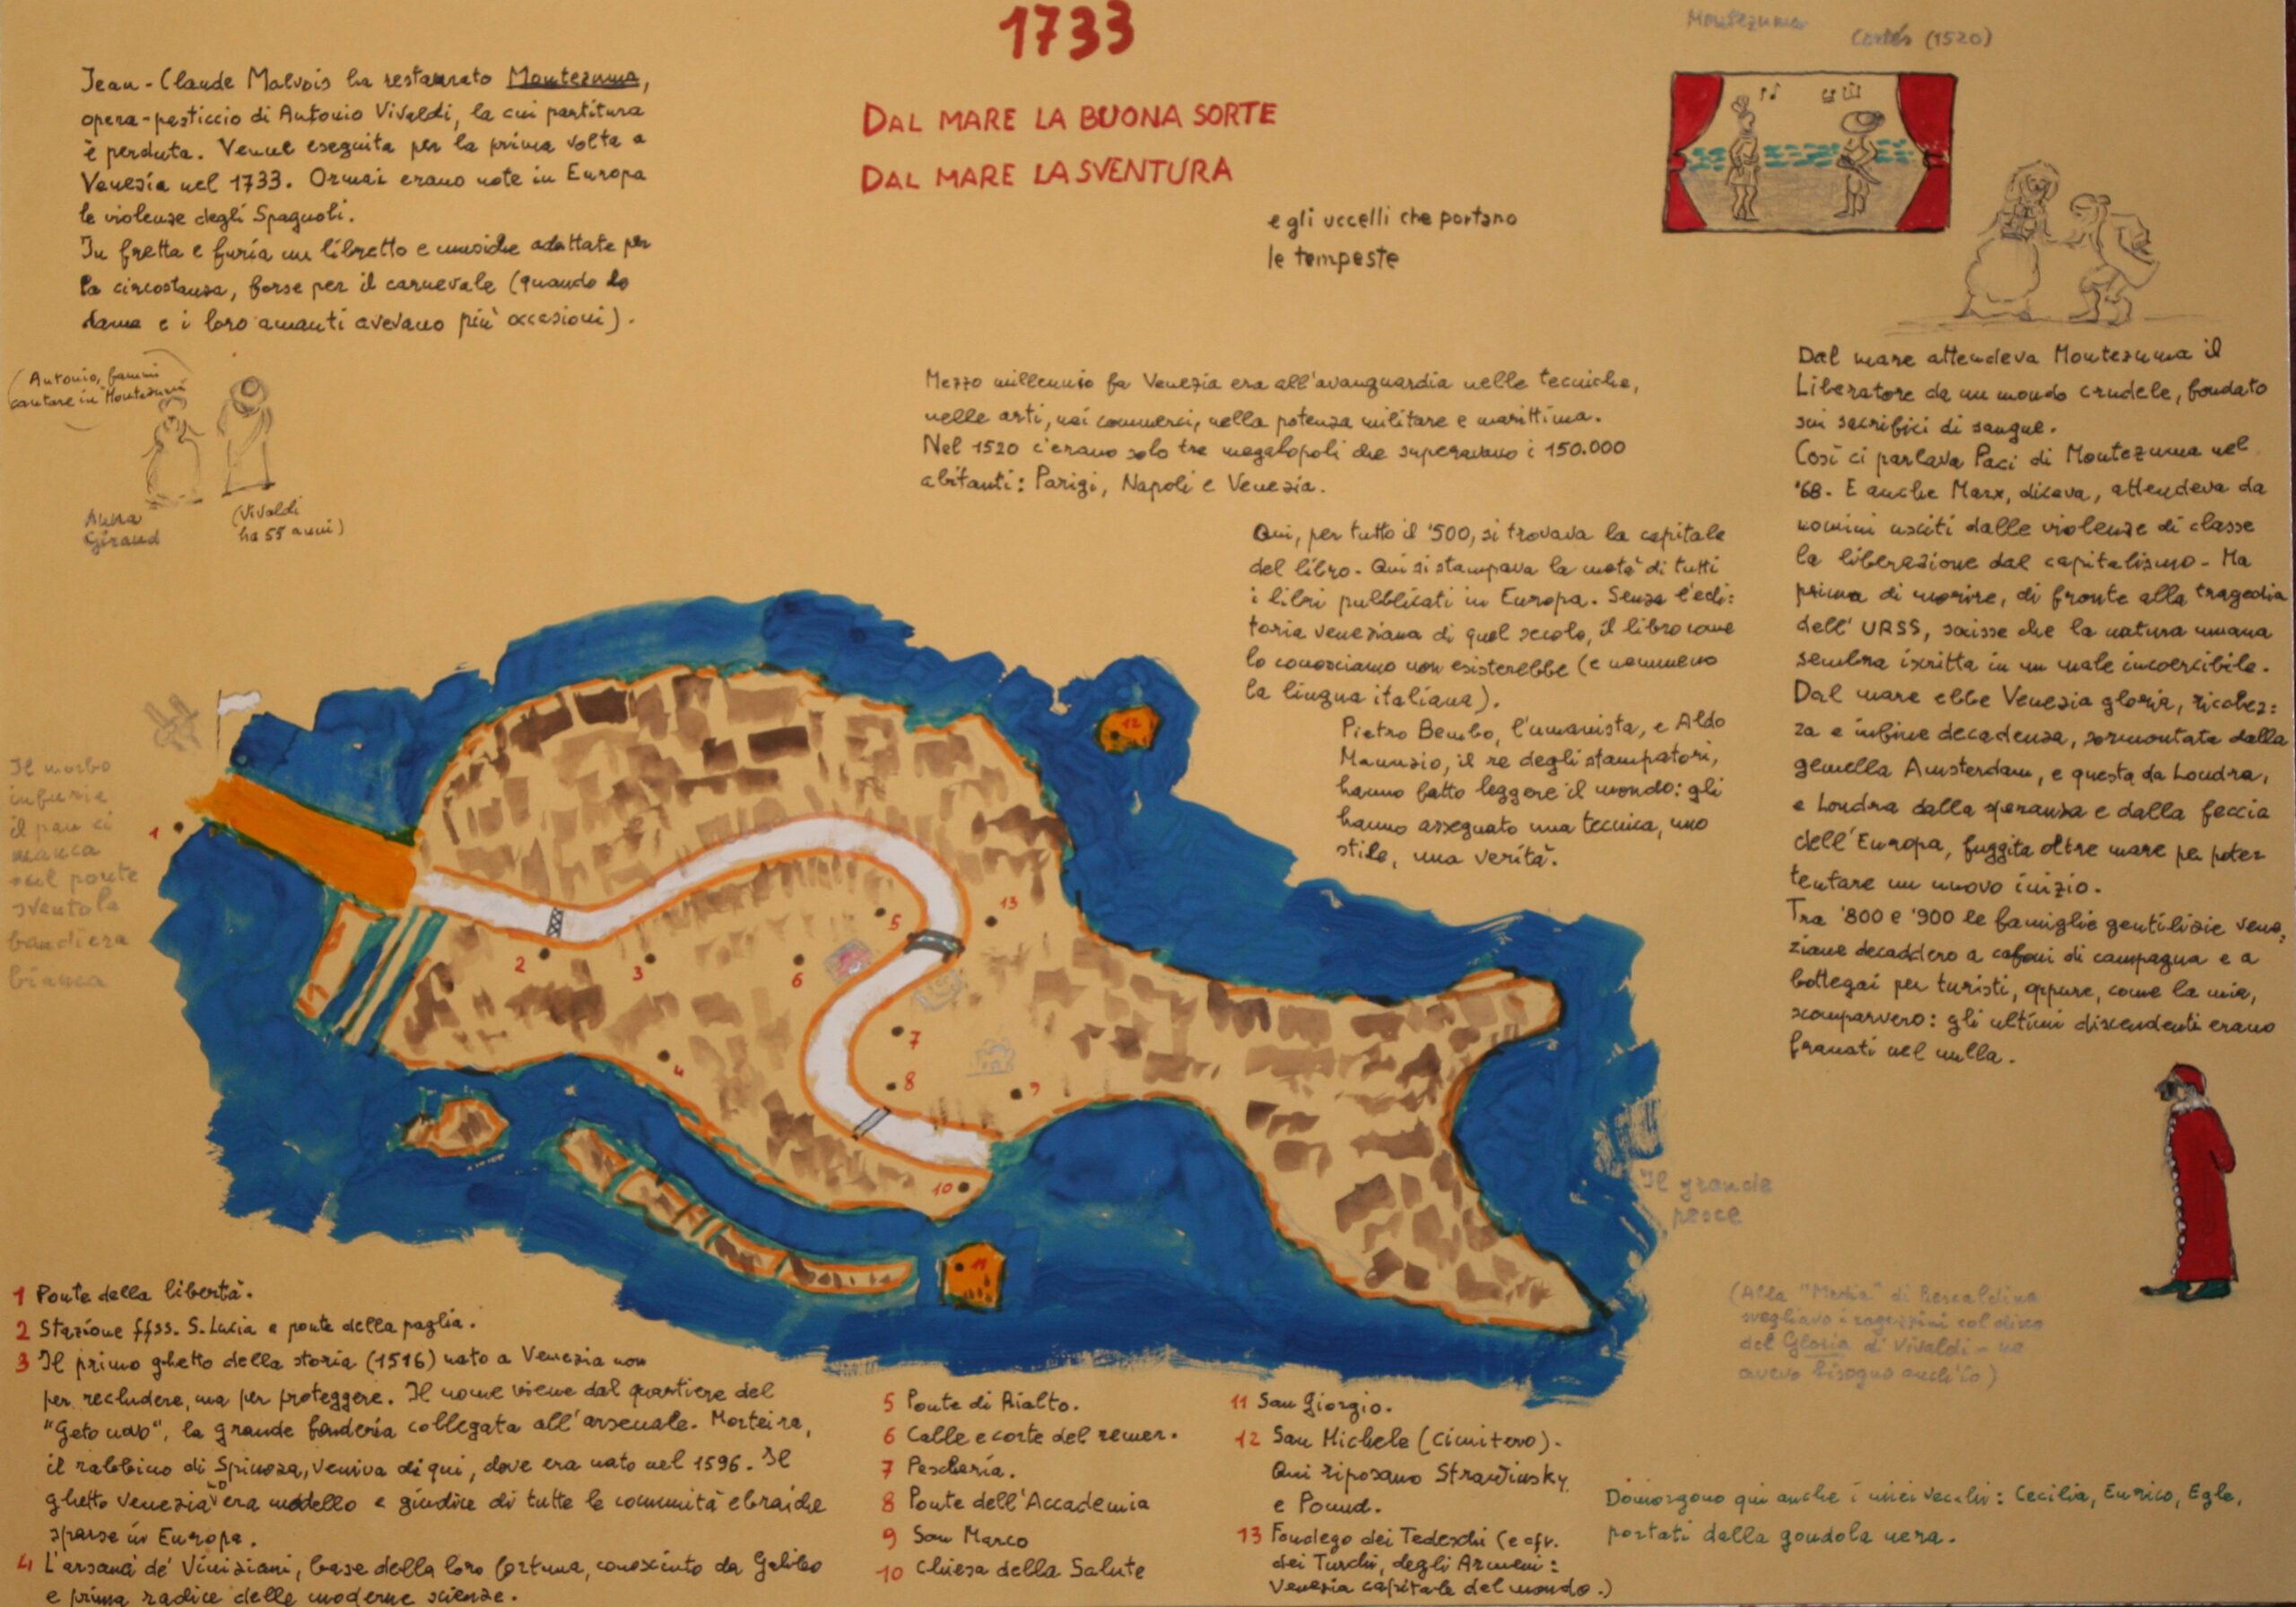 1733
DAL MARE LA BUONA SORTE
DAL MARE LA SVENTURA
e gli uccelli che portano
le tempeste
Jean-Claude Malvois ha restaurato Montezuma,
opera-pasticcio di Antonio Vivaldi, la cui partitura
è perduta. Venne eseguita per la prima volta a
Venezia nel 1733. Ormai erano note in Europa
le violenze degli Spagnoli.
In fretta e furia un libretto e musiche adattate per
la circostanza, forse per il carnevale (quando le
dame e i loro amanti avevano più occasioni).
(Antonio, fammi
cantare in Montezuma
Anna
Giraud
(Vivaldi
ha 55 anni)
Montezuma
Cortés (1520)
Mezzo millennio fa Venezia era all'avanguardia nelle tecniche,
nelle arti, nei commerci, nella potenza militare e marittima.
Nel 1520 c'erano solo tre megalopoli che superavano i 150.000
abitanti: Parigi, Napoli e Venezia.
Qui, per tutto il '500, si trovava la capitale
del libro. Qui si stampava la metà di tutti
i libri pubblicati in Europa. Senza l'edi:
toria veneziana di quel secolo, il libro come
lo conosciamo non esisterebbe (e nemmeno
la lingua italiana).
Pietro Bembo, l'umanista, e Aldo
Manuzio, il re degli stampatori,
hanno fatto leggere il mondo: gli
hanno assegnato una tecnica, uno
stile, una verità.
Dal mare attendeva Montezuma il
Liberatore da un mondo crudele, fondato
sui sacrifici di sangue.
Così ci parlava Paci di Montezuma nel
'68. E anche Marx, diceva, attendeva da
uomini usciti dalle violenze di classe
la liberazione dal capitalismo. Ma
prima di morire, di fronte alla tragedia
dell'URSS, scrisse che la natura umana
sembra iscritta in un male incoercibile.
Dal mare ebbe Venezia gloria, ricchez:
za e infine decadenza, sormontata dalla
gemella Amsterdam, e questa da Londra,
e Londra dalla speranza e dalla feccia
dell'Europa, fuggita oltre mare per poter
tentare un nuovo inizio.
Tra '800 e '900 le famiglie gentilizie vene:
ziane decaddero a cafoni di campagna e a
bottegai per turisti, oppure, come la mia,
scomparvero: gli ultimi discendenti erano
franati nel nulla.
Il morbo
infuria
il pan ci
manca
sul ponte
sventola
bandiera
bianca
1
2
3
4
5
6
7
8
9
10
11
12
13
Il grande
pesce
(Alla "Media" di Rescaldina
svegliavo i ragazzini col disco
del Gloria di Vivaldi - ne
avevo bisogno anch'io)
1 Ponte della libertà.
2 Stazione ffss. S. Lucia e ponte della paglia.
3 Il primo ghetto della storia (1516) nato a Venezia non
per recludere, ma per proteggere. Il nome viene dal quartiere del
"Geto novo", la grande fonderia collegata all'arsenale. Morteira,
il rabbino di Spinoza, veniva di qui, dove era nato nel 1596. Il
ghetto veneziano era modello e giudice di tutte le comunità ebraiche
sparse in Europa.
4 L'arsanà de' Viniziani, base della loro fortuna, conosciuto da Galileo
e prima radice delle moderne scienze.
5 Ponte di Rialto.
6 Calle e corte del remer.
7 Pescheria.
8 Ponte dell'Accademia
9 San Marco
10 Chiesa della Salute
11 San Giorgio.
12 San Michele (cimitero).
Qui riposano Strawinsky
e Pound.
13 Fondego dei Tedeschi (e cfr.
dei Turchi, degli Armeni:
Venezia capitale del mondo.)
Dormono qui anche i miei vecchi: Cecilia, Enrico, Egle,
portati dalla gondola nera.